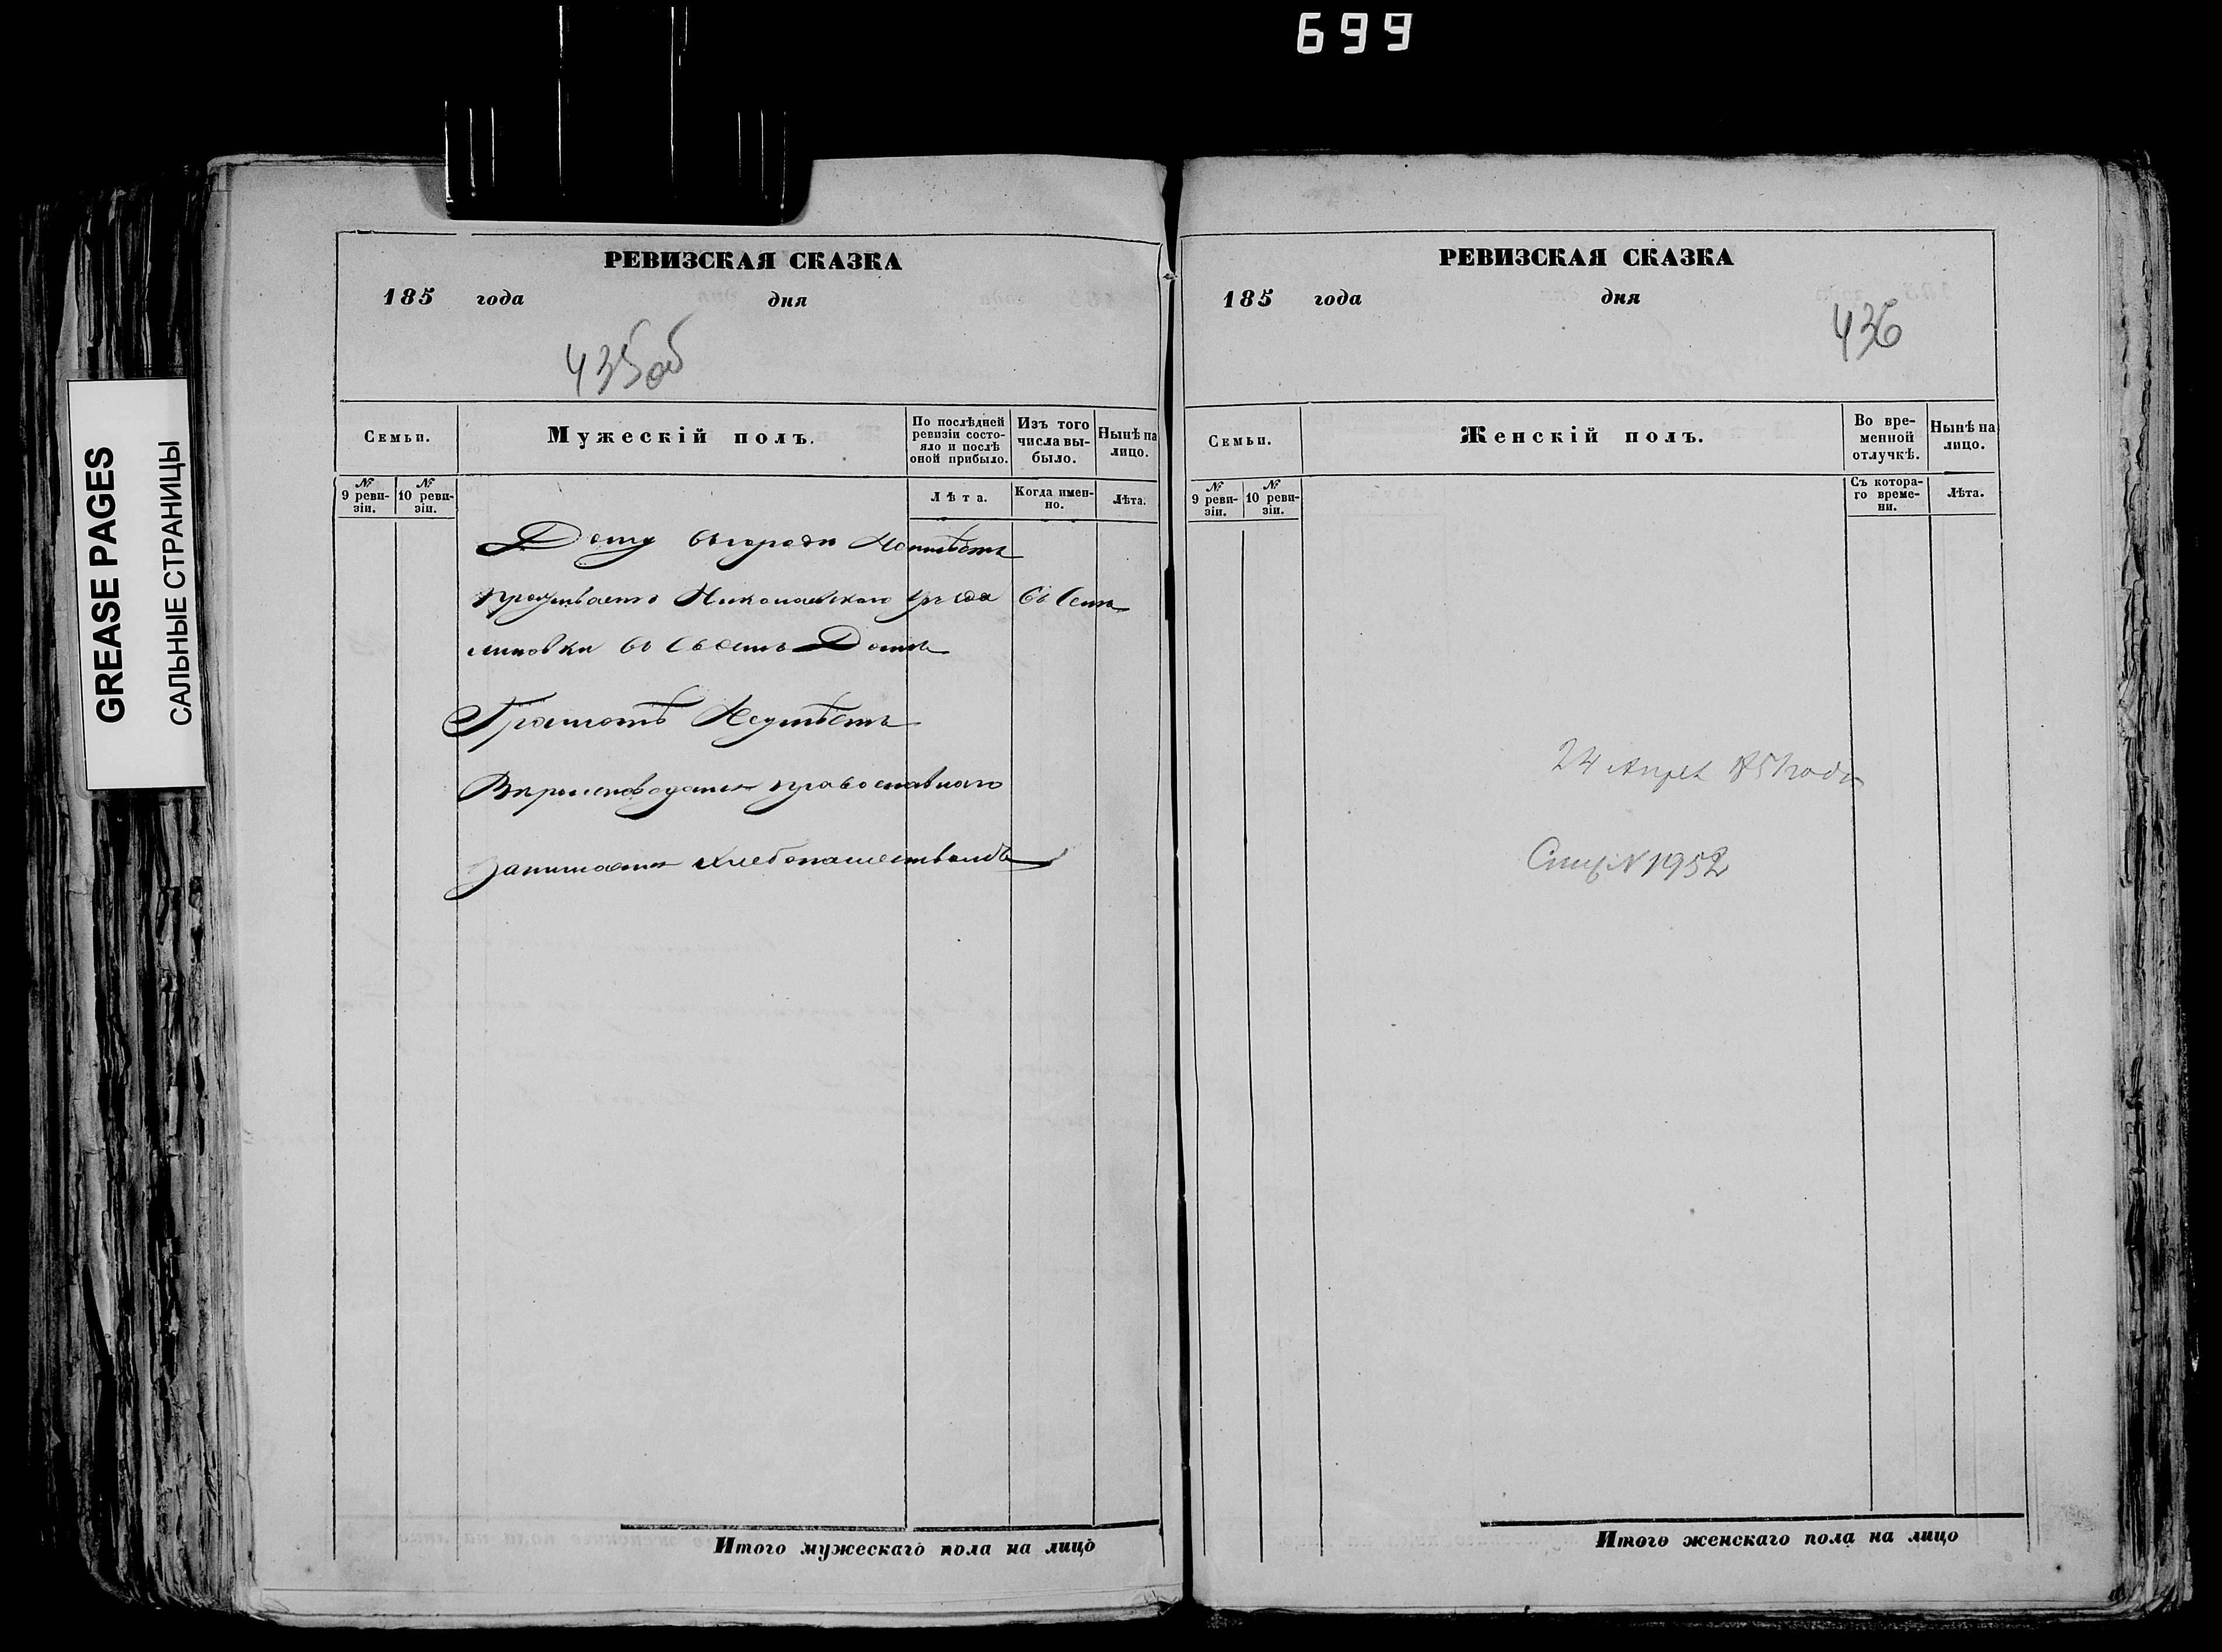 699
GREASE PAGES
САЛЬНЫЕ СТРАНИЦЫ
РЕВИЗСКАЯ СКАЗКА
185 года дня
435об
Семьи.
Мужескій полъ.
По послѣдней ревизіи состояло и послѣ оной прибыло.
Изъ того числа выбыло.
Нынѣ на лицо.
№ 9 ревизіи.
№ 10 ревизіи.
Лѣта.
Когда именно.
Лѣта.
Дому въ городи Неимѣетъ
проживаетъ Николаевскаго уезда въ
въ своемъ Доме
Грамотѣ Неумѣетъ
православнаго
Занимается хлебопашествомъ
Итого мужескаго пола на лицо
РЕВИЗСКАЯ СКАЗКА
185 года дня
436
Семьи.
Женскій полъ.
Во временной отлучкѣ.
Нынѣ на лицо.
№ 9 ревизіи.
№ 10 ревизіи.
Съ котораго времени.
Лѣта.
24 Апреля года
№ 1952
Итого женскаго пола на лицо